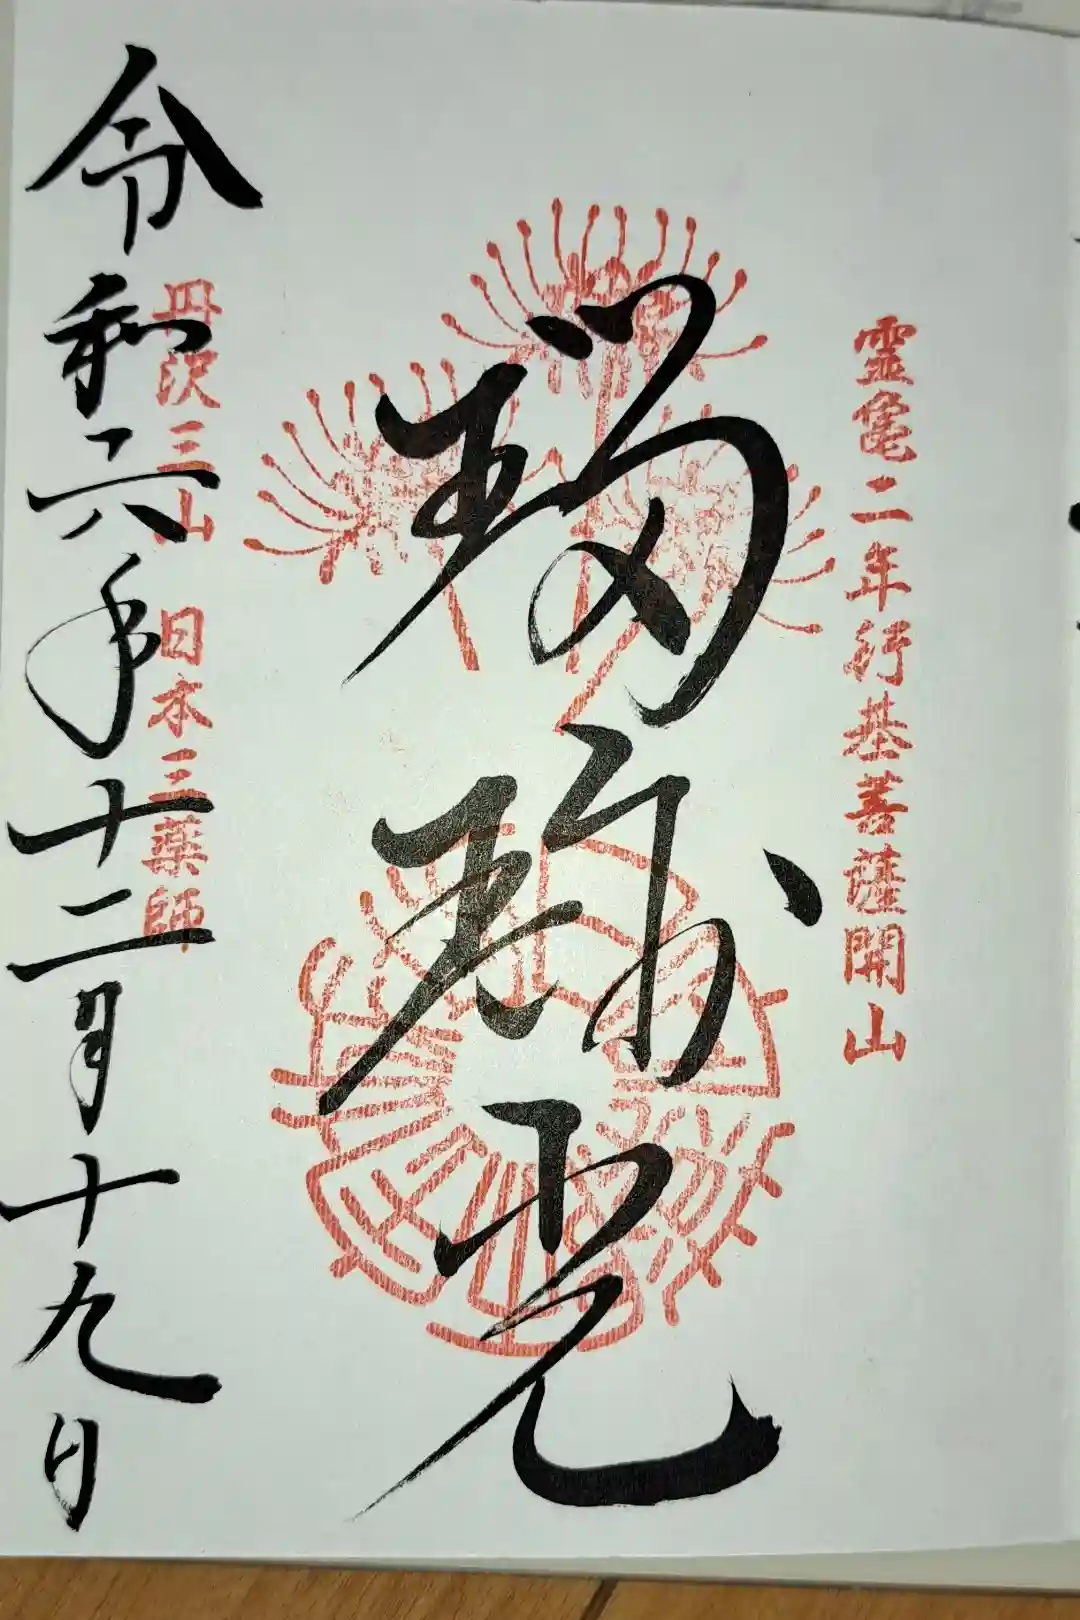 霊亀二年行基菩薩開山
瑠璃光
丹沢三山 日本三薬師
令和六年十二月十九日